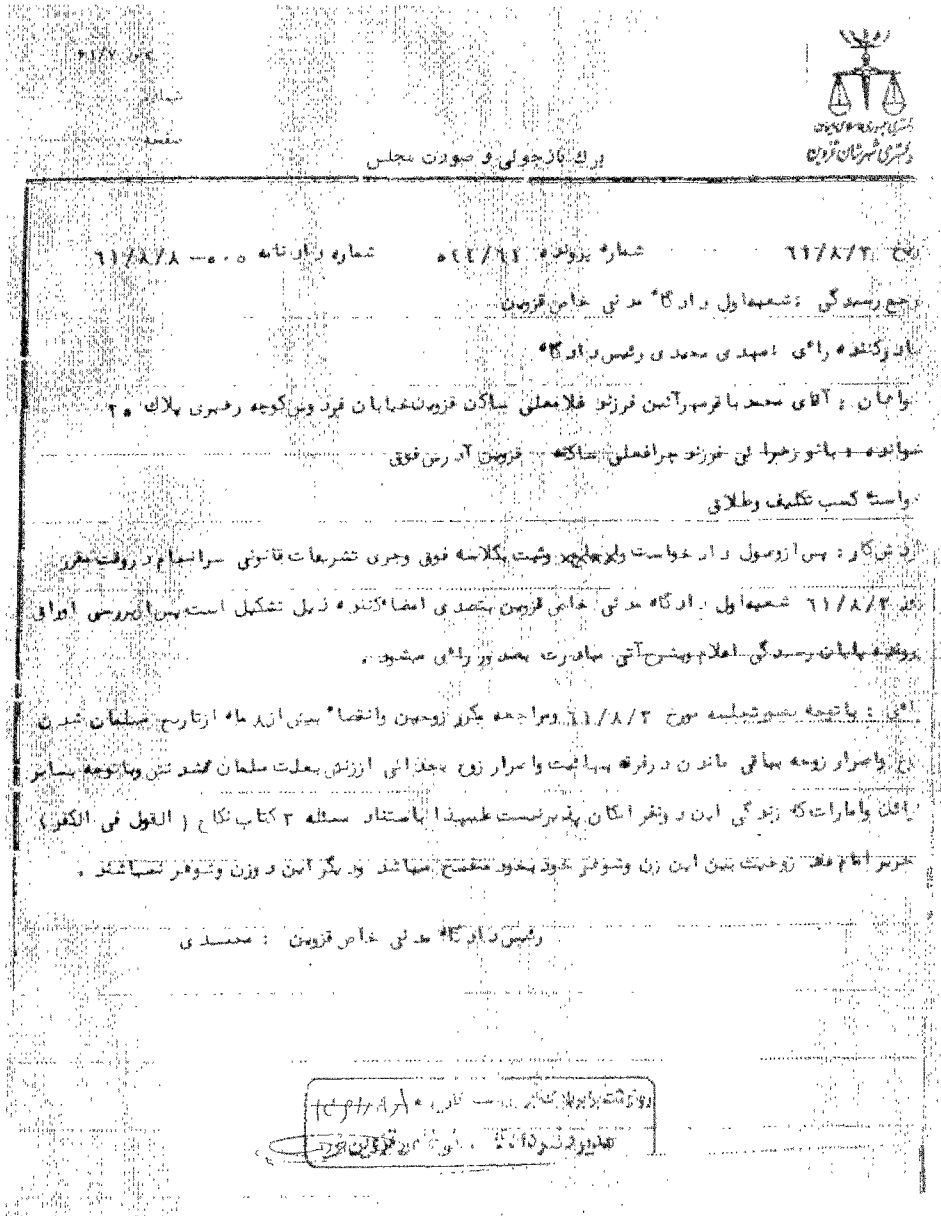 شماره
صفحه
دادگستری جمهوری اسلامی ایران
دادگستری شهرستان قزوین
برگ بازجوئی و صورت مجلس
۶۱/۸/۳ شماره پرونده ۵۴۴/۶۱ شماره دادنامه ۵۰۰-۶۱/۸/۸
رجع رسیدگی : شعبه اول دادگاه مدنی خاص قزوین
رای : مهدی محمدی رئیس دادگاه
آقای محمد باقر مهرآئین فرزند غلامعلی ساکن قزوین خیابان فردوسی کوچه رهبری پلاک ۲۰
خوانده : بانو زهرا فرزند چراغعلی ساکنه قزوین آدرس فوق
کسب تکلیف وطلاق
کار : پس از وصول دادخواست و ثبت بکلاسه فوق وجری تشریفات قانونی سرانجام در وقت مقرر
۶۱/۸/۳ شعبه اول دادگاه مدنی خاص قزوین بتصدی امضاءکننده ذیل تشکیل است پس از بررسی اوراق
پرونده پایان رسیدگی اعلام وبشرح آتی مبادرت بصدور رای میشود .
باتوجه بصورتجلسه مورخ ۶۱/۸/۳ ومراجعه مکرر زوجین وانقضاء بیش از ۸ ماه ازتاریخ مسلمان شدن
واصرار زوجه بباقی ماندن درفرقه بهائیت واصرار زوج بجدائی اززنش بعلت مسلمان نشدنش وباتوجه بسایر
وامارات که زندگی این دونفر امکان پذیرنیست علیهذا باستناد مسئله ۳ کتاب نکاح ( القول فی الکفر )
تحریر امام زوجیت بین این زن وشوهر خود بخود منفسخ میباشد ودیگر این دو زن وشوهر نمیباشند .
رئیس دادگاه مدنی خاص قزوین : محمدی
مدیر دفتر دادگاه قزوین